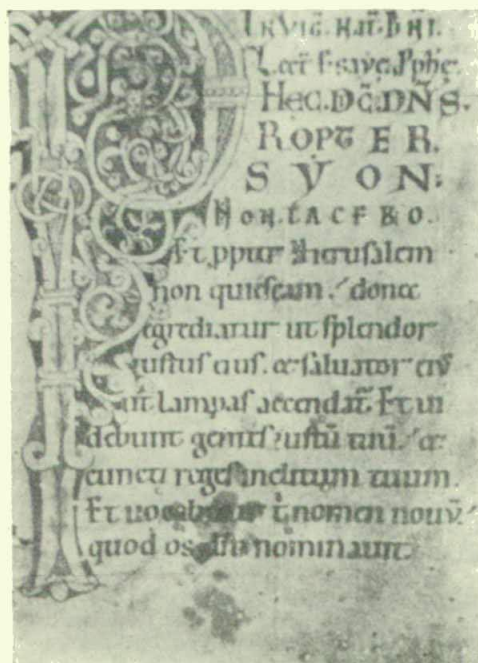 IN VIG. NAT. DNI.
Lect. Isaye. Pphe.
HEC. DC. DNS.
PROPTER
SYON:
NON. TACEBO.
Et ppter Iherusalem
non quiescam. donec
egrediatur ut splendor
iustus eius. et saluator ei'
ut lampas accendat. Et ui
debunt gentes iustu tuu. et
cuncti reges inclitum tuum.
Et uocabitur t nomen nouu.
quod os dni nominauit